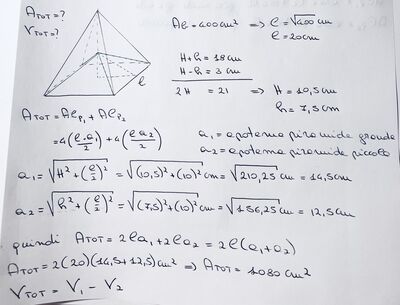 Aᴛᴏᴛ = ?
Vᴛᴏᴛ = ?
l
Al = 400 cm² ⇒ l = √400 cm
l = 20 cm
H+h = 18 cm
H-h = 3 cm
2H = 21 ⇒ H = 10,5 cm
h = 7,5 cm
Aᴛᴏᴛ = Alₚ₁ + Alₚ₂
= 4(l·a₁/2) + 4(l·a₂/2) a₁ = apotema piramide grande
a₂ = apotema piramide piccola
a₁ = √(H² + (l/2)²) = √((10,5)² + (10)²) cm = √210,25 cm = 14,5 cm
a₂ = √(h² + (l/2)²) = √((7,5)² + (10)²) cm = √156,25 cm = 12,5 cm
quindi Aᴛᴏᴛ = 2la₁ + 2la₂ = 2l(a₁+a₂)
Aᴛᴏᴛ = 2(20)(14,5+12,5)cm² ⇒ Aᴛᴏᴛ = 1080 cm²
Vᴛᴏᴛ = V₁ - V₂